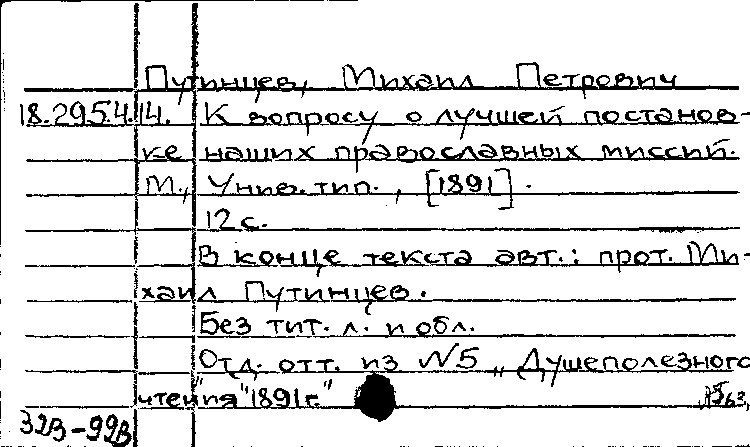 Путинцев, Михаил Петрович
18.295.4.14. К вопросу о лучшей постанов-
ке наших православных миссий.
М., Унив. тип., [1891].
12 с.
В конце текста авт.: прот. Ми-
хаил Путинцев.
Без тит. л. и обл.
Отд. отт. из №5 „Душеполезного
чтения" 1891 г."
32В-99В